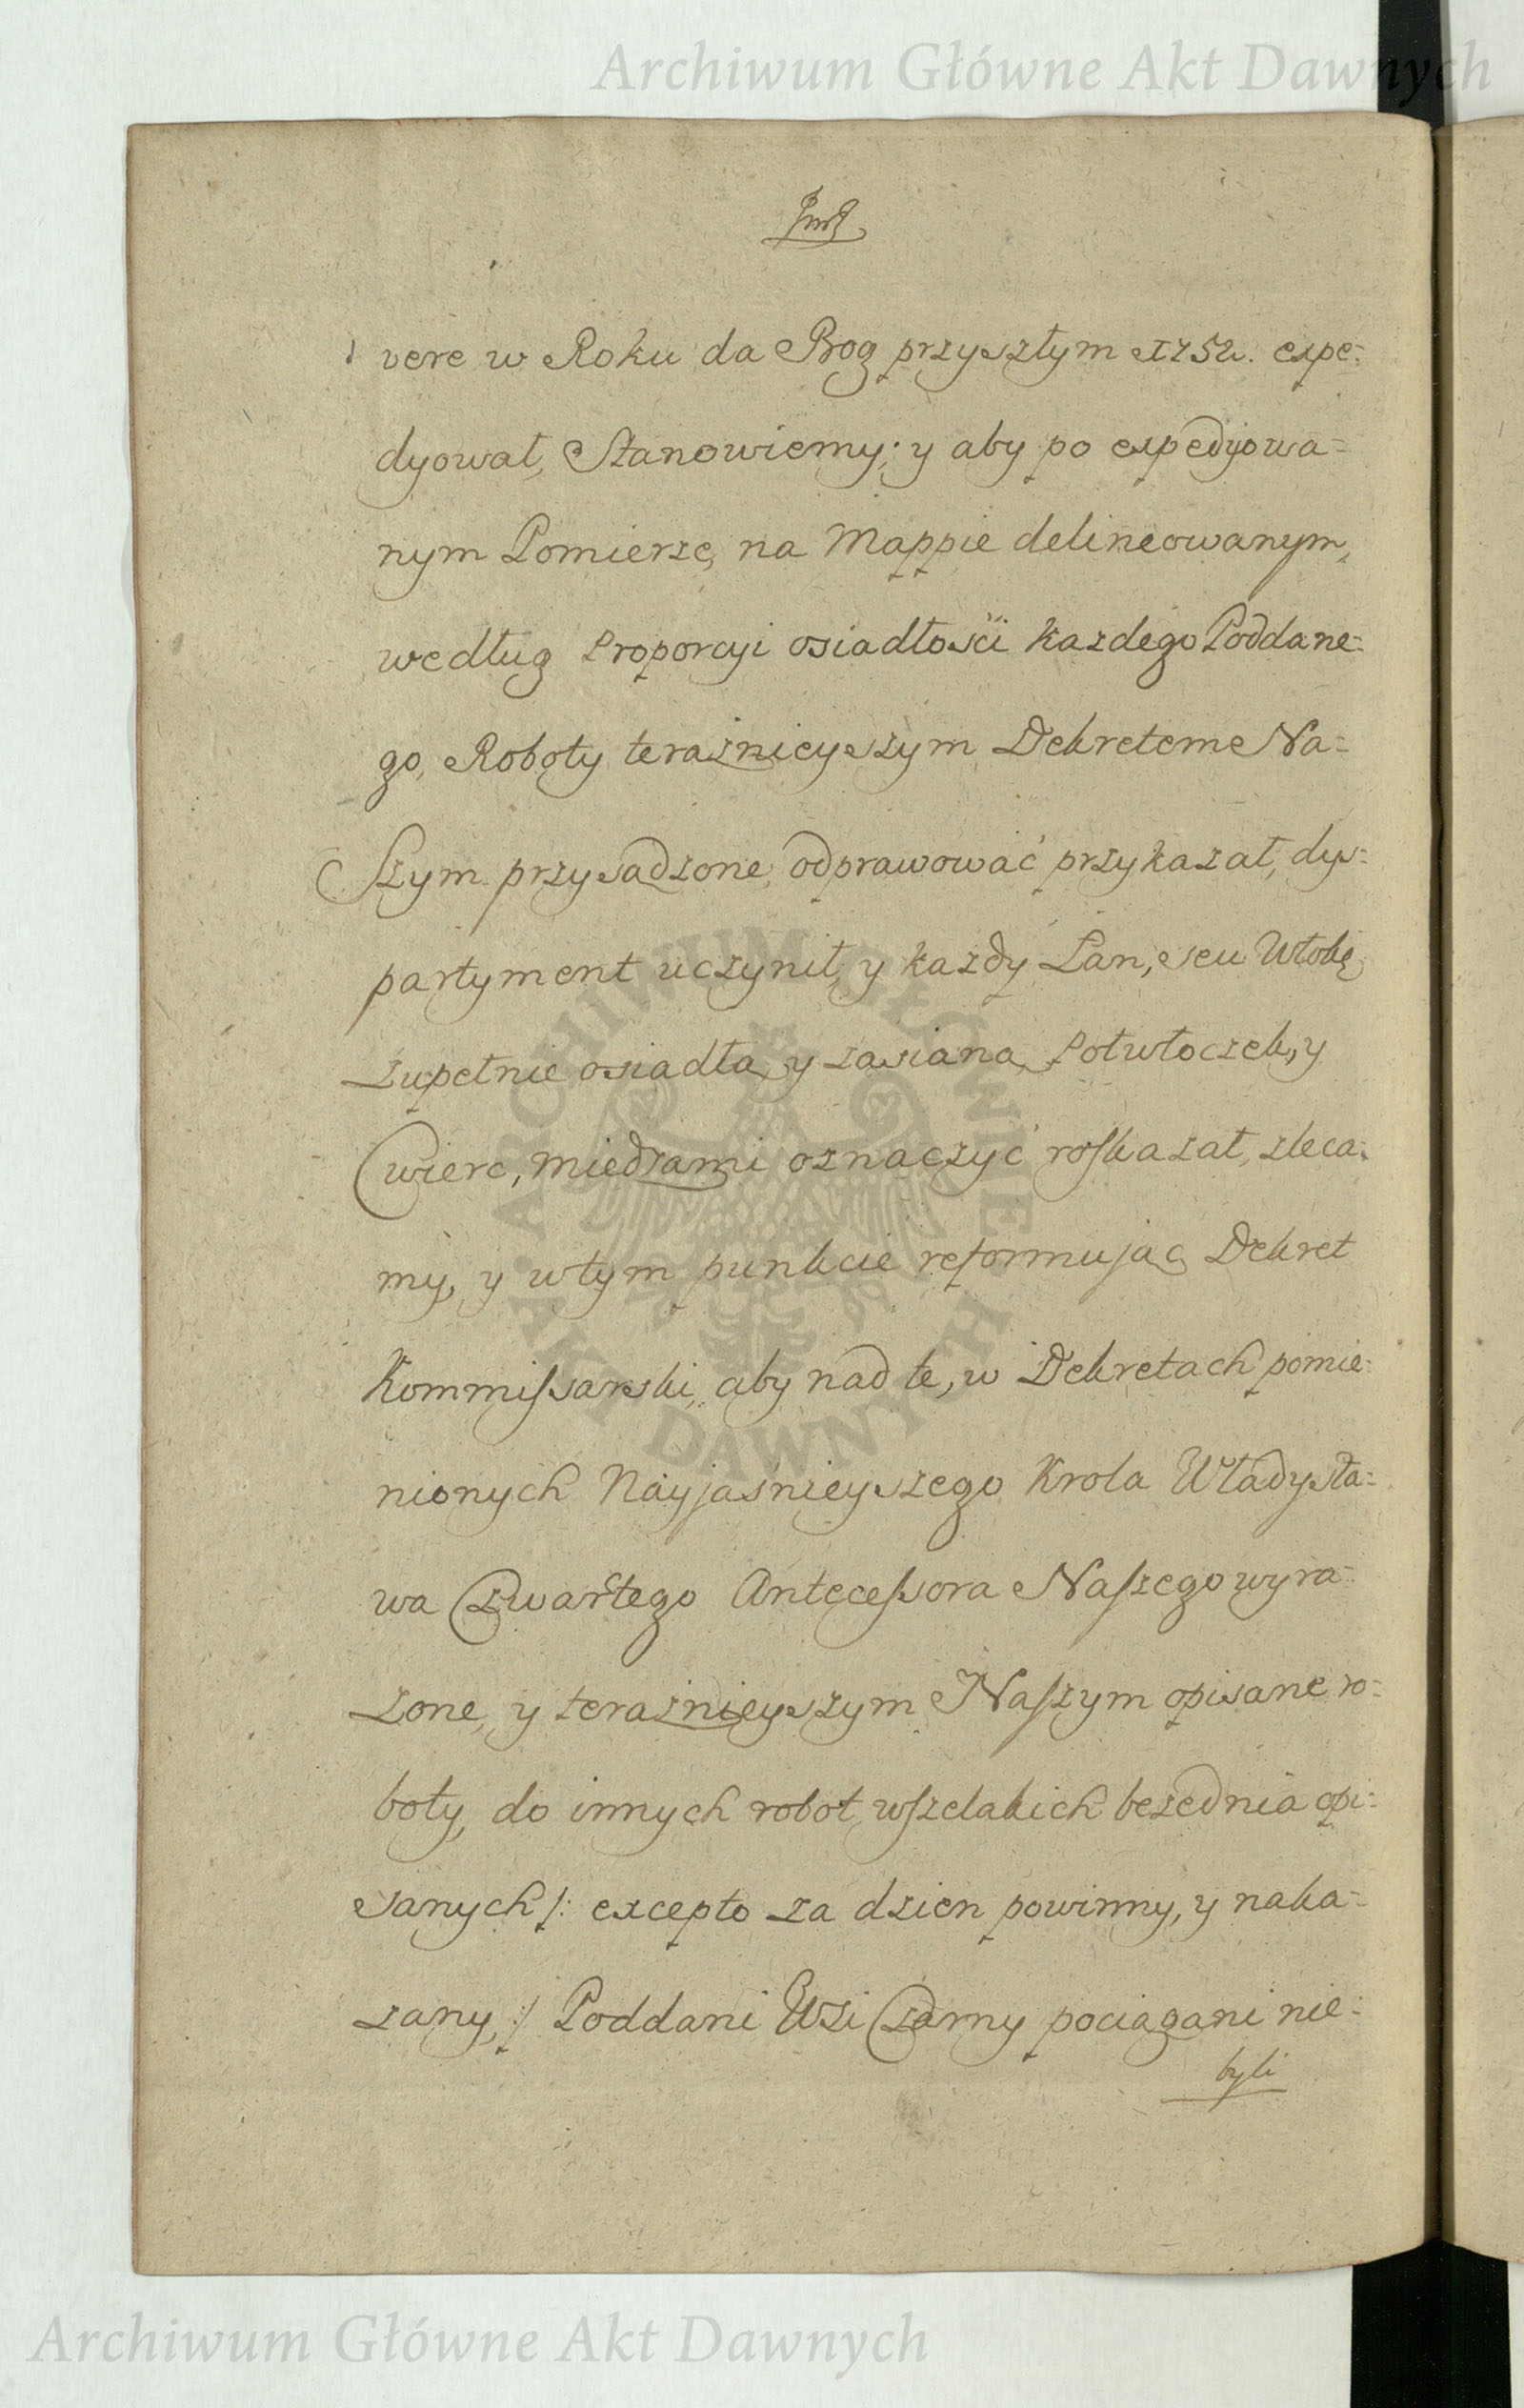 Archiwum Główne Akt Dawnych
vere w Roku da Bog przyszłym 1752. expe=
dyował, Stanowiemy; y aby po expedyowa=
nym Pomierze, na Mappie delineowanym,
według Proporcyi osiadłości każdego Poddane=
go, Roboty teraznieyszym Dekretem Na=
szym przysadzone, odprawować przykazał, dys=
partyment uczynił, y każdy Łan, seu Włokę
zupełnie osiadłą y zasianą, Połwłoczek, y
Cwierc, miedzami oznaczyć roskazał, zleca=
my, y wtym punkcie reformując Dekret
Kommissarski, aby nad te, w Dekretach pomie=
nionych Nayjaśnieyszego Krola Władysła=
wa Czwartego Antecessora Naszego wyra=
zone, y teraznieyszym Naszym opisane ro=
boty, do innych robot wszelakich bezednia opi=
sanych /: excepto za dzien powinny, y naka=
zany, :/ Poddani Wsi Czarny pociągani nie=
byli
ARCHIWUM GŁÓWNE
AKT DAWNYCH
Archiwum Główne Akt Dawnych